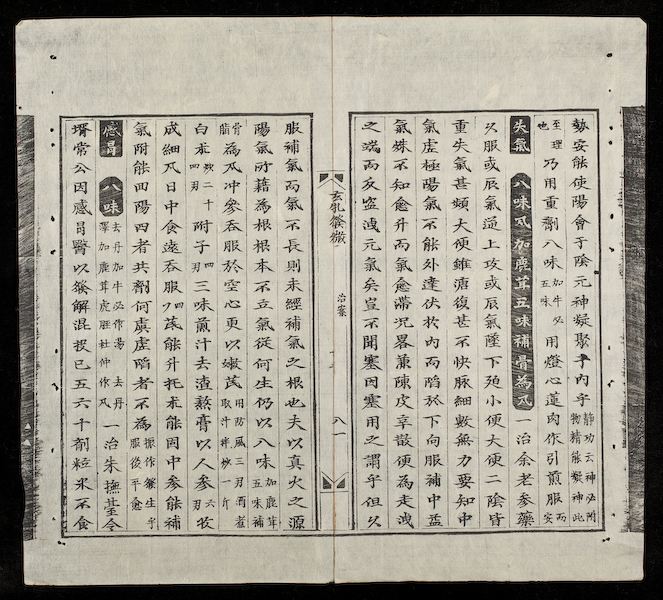 勢安能使陽會于陰元神凝聚乎內乎靜功云神必附物精能凝神此
至理也乃用重劑八味加牛必五味用燈心蓮肉作引煎服而安
失氣 八味丸加鹿茸五味補骨為丸 一治余老參藥
久服或辰氣逆上攻或辰氣墜下殆小便大便二陰皆
重失氣甚頻大便雖溏復甚不快脉細數無力要知中
氣虛極陽氣不能外達伏於內而陷於下向服補中益
氣殊不知愈升而氣愈滯况畧兼陳皮辛散便為走洩
之端而反盗洩元氣矣豈不聞塞因塞用之謂乎但久
玄牝發微 治案 八一
服補氣而氣不長則未經補氣之根也夫以真火之源
陽氣所藉為根根本不立氣從何生仍以八味加鹿茸五味補
骨脂為丸冲參吞服於空心更以嫩芪用防風三刃酒煮取汁拌炒一斤
白朮炒二十四刃附子四刃三味煎汁去渣熬膏以人參六刃收
成細丸日中食遠吞服四芪能升托朮能固中參能補
氣附能回陽四者共劑何虞虛陷者不為振作發生乎服後平愈
感冒 八味 去丹加牛必作湯 去丹澤加鹿茸虎脛杜仲作丸 一治朱撫臺令
壻常公因感冒醫以發解混投已五六十劑粒米不食